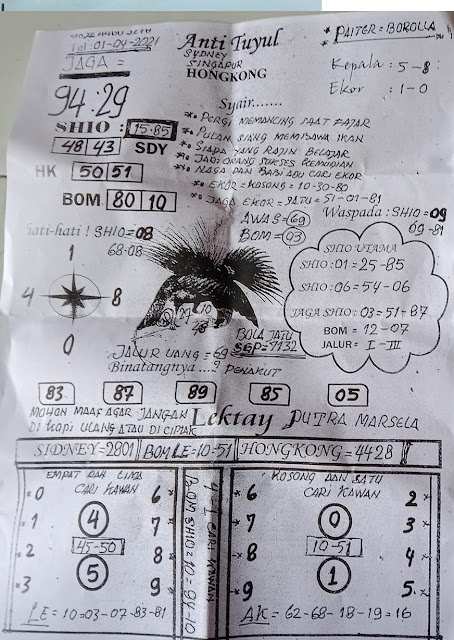 Tgl: 01-04-2021
Anti Tuyul
* PAITER = BOROLLA
SYDNEY
SINGAPUR
HONGKONG
JAGA =
Kepala : 5-8
Ekor : 1-0
94:29
Syair.......
SHIO : 15-85
48 43 SDY
HK 50 51
BOM 80 10
* PERGI MEMANCING SAAT FAJAR
* PULAN SIANG MEMBAWA IKAN
* SIAPA YANG RAJIN BELAJAR
* JADI ORANG SUKSES KEMUDIAN
* NAGA DAN BABI ADU CARI EKOR
* EKOR = KOSONG = 10-30-80
* JAGA EKOR = SATU = 51-01-81
AWAS = 69
BOM = 03
Waspada : SHIO = 09
69-81
Hati-hati ! SHIO = 08
68-08
1
4 8
0
SHIO UTAMA
SHIO : 01 = 25-85
SHIO : 06 = 54-06
JAGA SHIO : 03 = 51-87
BOM = 12-07
JALUR = I-III
BOLA JATU
SGP = 7132
JALUR UANG = 69
Binatangnya ....? PENAKUT
83 87 89 85 05
MOHON MAAF AGAR JANGAN
DI KOPI ULANG ATAU DI CIPLAK
Lektay PUTRA MARSELA
SIDNEY = 2801 BOM LE = 10-51 HONGKONG = 4428
EMPAT DAN LIMA
CARI KAWAN
0 6
1 4 7
2 45-50 8
3 5 9
LE = 10=03-07-83-81
4=1 CARI KAWAN
BOM SHIO = 10 = 94-10
KOSONG DAN SATU
CARI KAWAN
6 2
7 0 3
8 10-51 4
9 1 5
AK = 62-68-18-19=16